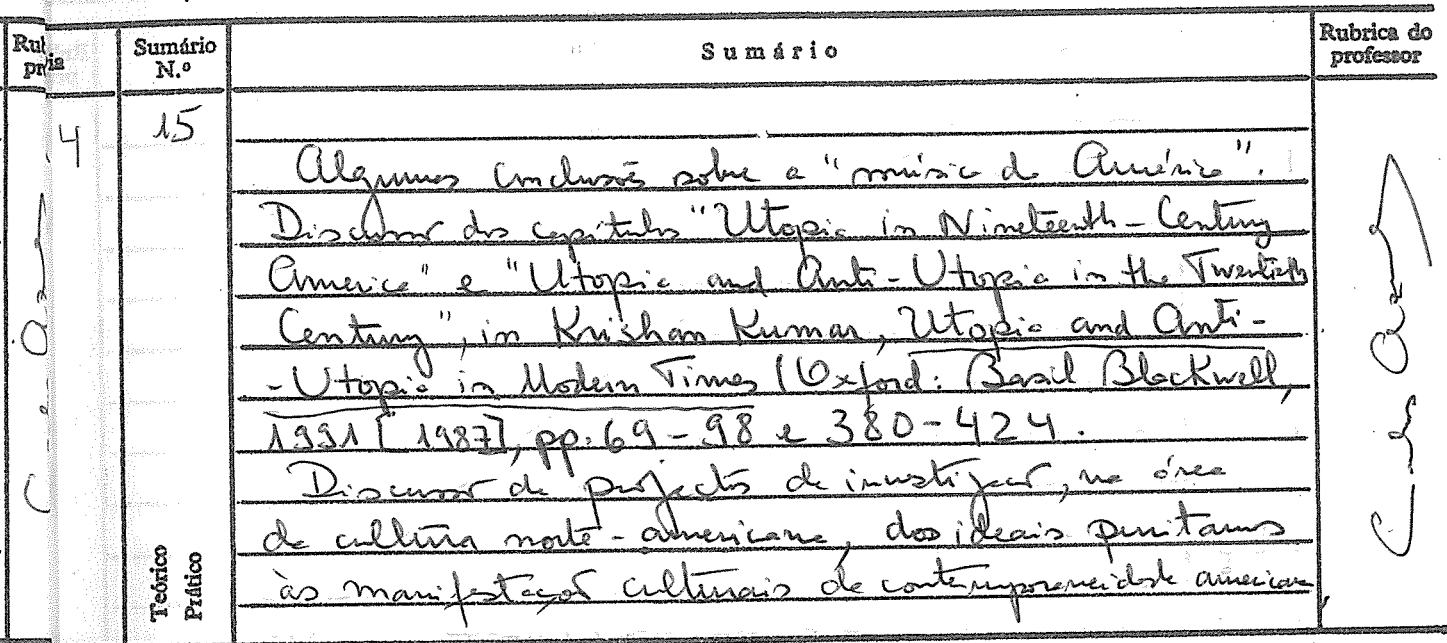 Rub
pr
ia
Sumário
N.º
Sumário
Rubrica do
professor
4
15
Algumas conclusões sobre a "música da América".
Discussão dos capítulos "Utopia in Nineteenth-Century
America" e "Utopia and Anti-Utopia in the Twentieth
Century", in Krishan Kumar, Utopia and Anti-
-Utopia in Modern Times (Oxford: Basil Blackwell,
1991 [1987], pp. 69-98 e 380-424.
Discussão de projectos de investigação, na área
da cultura norte-americana, dos ideais puritanos
às manifestações culturais da contemporaneidade americana
Teórico
Prático